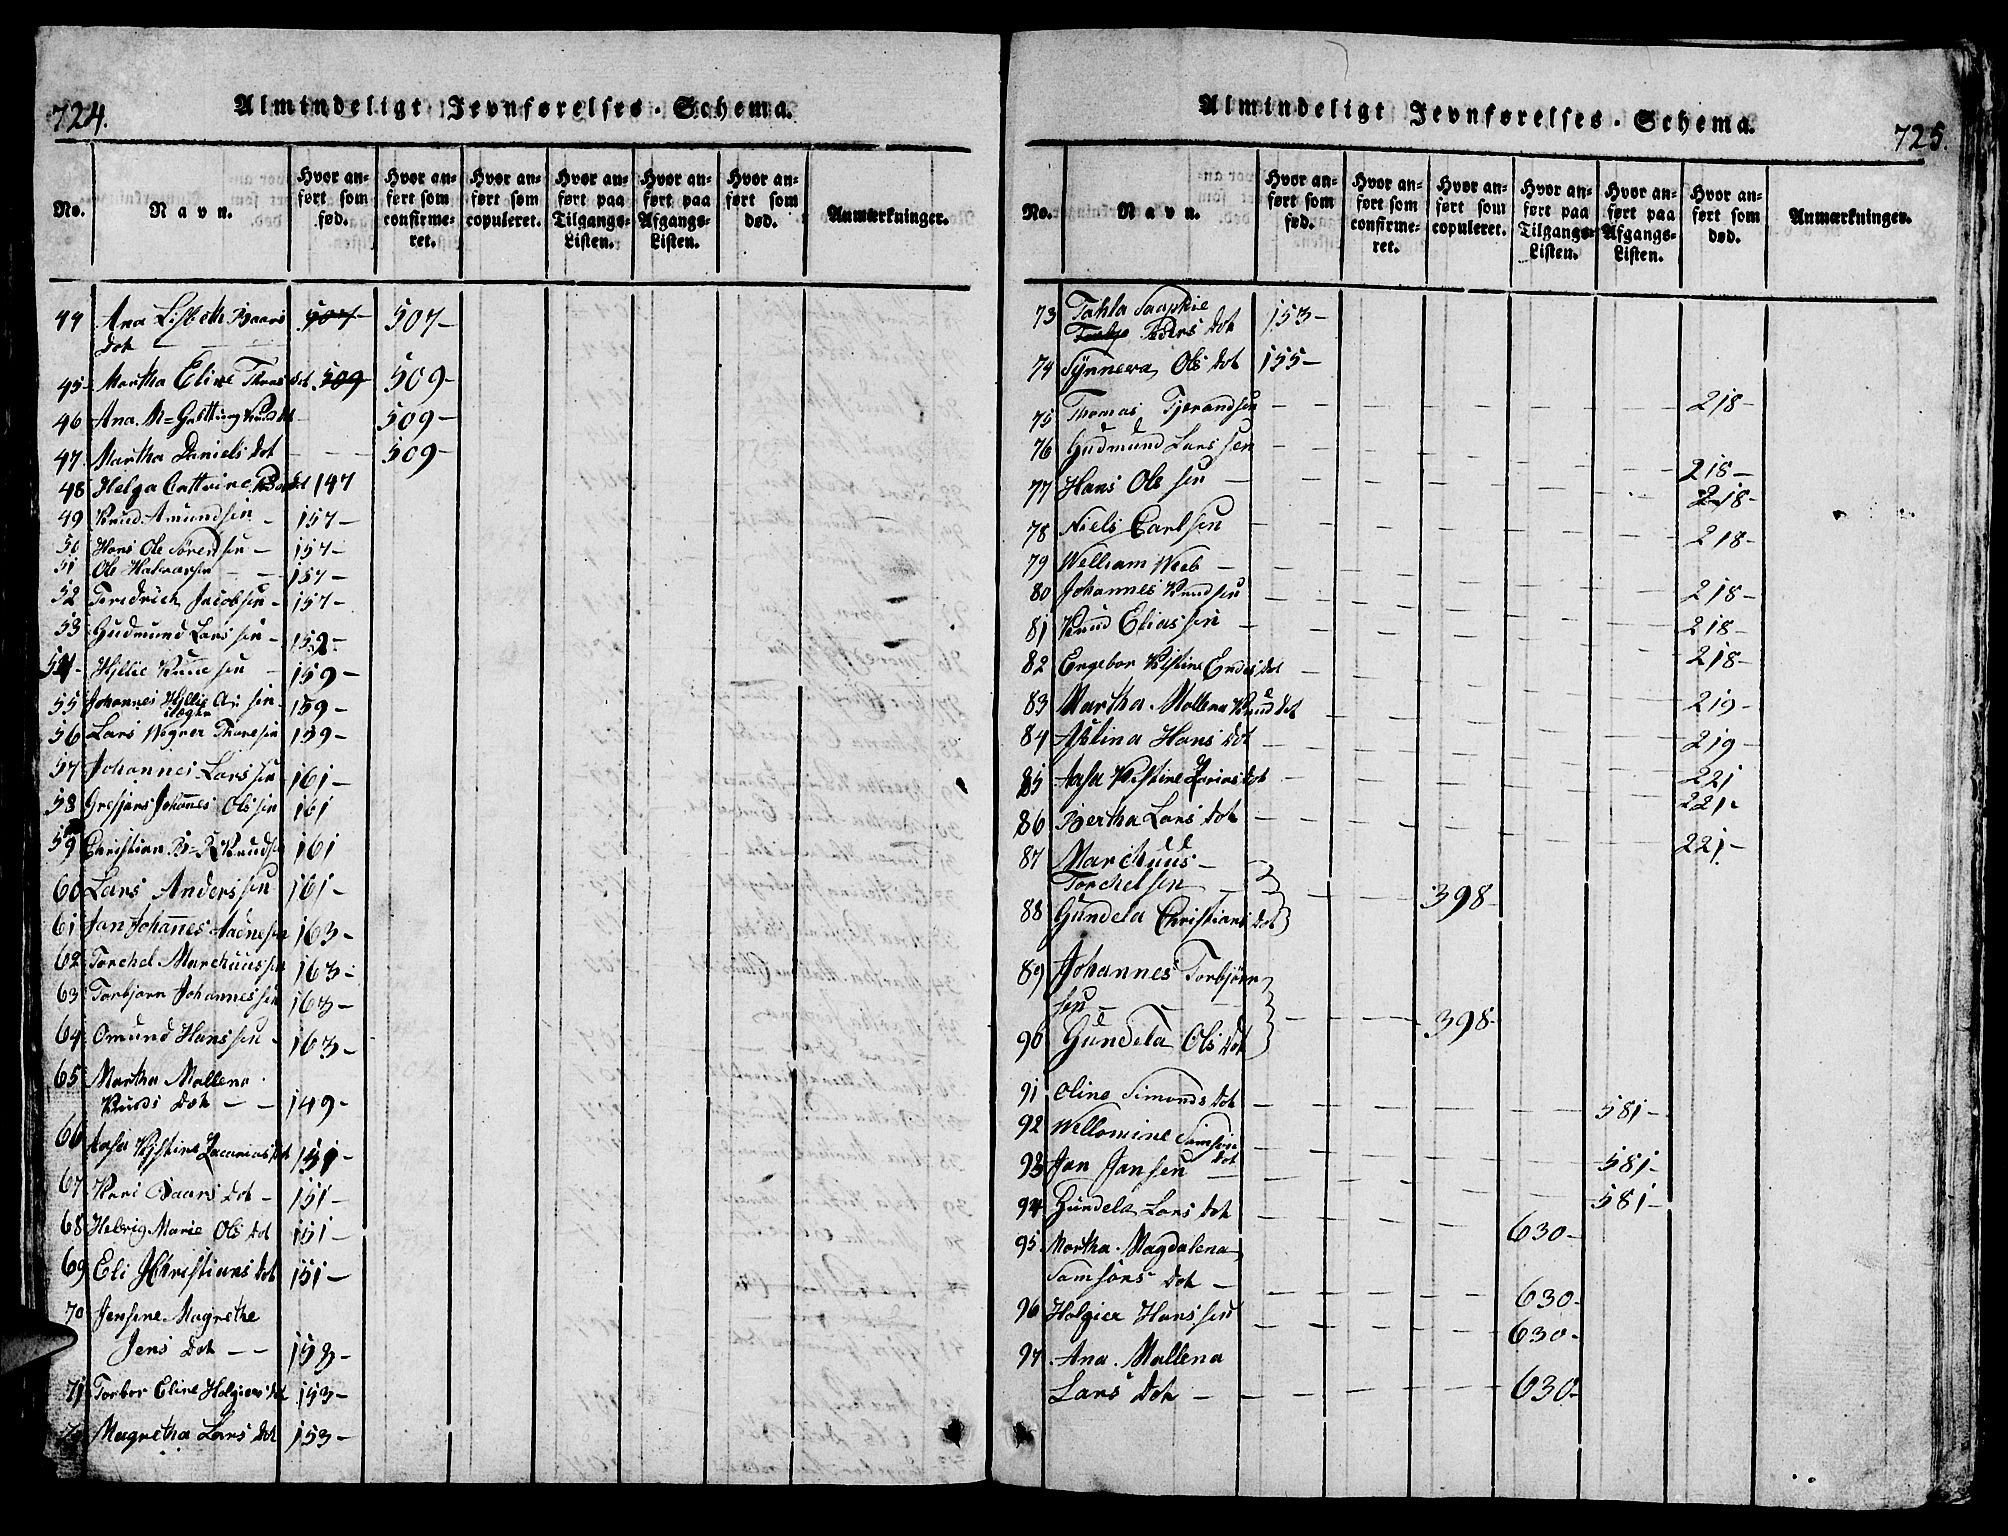 724.
Almindeligt Jevnførelses-Schema.
No.
Navn.
Hvor anført som fød.
Hvor anført som confirmeret.
Hvor anført som copuleret.
Hvor anført paa Tilgangs-Listen.
Hvor anført paa Afgangs-Listen.
Hvor anført som død.
Anmærkninger.
44 Ana Lisbeth Baars 507 507-
Dot -
45- Martha Eline Thores Dot 509 509-
46 Ana M= Knuds Dot 509-
47 Martha Daniels Dot - - 509-
48 Helga Cattrine Dot 147
49 Knud Amundsen - 157-
50 Hans Ole Sørensen - 157-
51 Ole Halvorsen - - 157-
52 Feredrich Jacobsen - 157-
53 Gudmund Larssen - 159-
54- Hyllie Knudsen - 159-
55 Johannes Hyllie Aasen 159-
56 Lars Wegner Thoresen 159-
57 Johannes Larssen 161-
58 Gresjars Johannes Olssen 161
59 Christian B-R Knudsen 161
60 Lars Anderssen 161-
61 Jan Johannes Aadnesen 163-
62 Torchel Marchuussen 163-
63 Torbjørn Johannessen 163-
64 Omund Hanssen - 163-
65 Martha Mallena
Knuds Dot - - 149-
66 Aasa Kistine Zacarias Dot 151-
67 Kari Baars Dot - 151-
68 Helvig Marie Ols Dot 151-
69 Eli Christians Dot 151-
70 Jensine Magrethe
Jens Dot - - 153-
71 Torbor Eline Holgiers Dot 153-
72 Magretha Lars Dot 153-
Almindeligt Jevnførelses-Schema.
725.
No.
Navn.
Hvor anført som fød.
Hvor anført som confirmeret.
Hvor anført som copuleret.
Hvor anført paa Tilgangs-Listen.
Hvor anført paa Afgangs-Listen.
Hvor anført som død.
Anmærkninger.
73 Tahla Saaphie
Peders Dot 153-
74 Synneva Ols Dot 155-
75 Thomas Tjerandsen 218-
76 Gudmund Larssen 218-
77 Hans Olesen - 218-
78 Niels Carlsen 218-
79 William Weeb - 218-
80 Johannes Knudsen 218-
81 Knud Eliassen - 218-
82 Engebor Kistine Endes Dot 219-
83 Martha Mallena Knud Dot 219-
84 Astina Hans Dot 221
85 Aasa Kistine Zarias Dot 221-
86 Bertha Lars Dot 221-
87 Marchuus -
Torchelsen -
88 Gundela Christians Dot 398-
89 Johannes Torbjørn
sen -
90 Gundela Ols Dot 398-
91 Oline Simonds Dot 581-
92 Wellomine Samsons
Dot 581-
93 Jan Jansen - 581-
94 Gundela Lars Dot 630-
95 Martha Magdalena
Samsons Dot - 630-
96 Holgier Hanssen 630-
97 Ana Mallena
Lars Dot - 630-